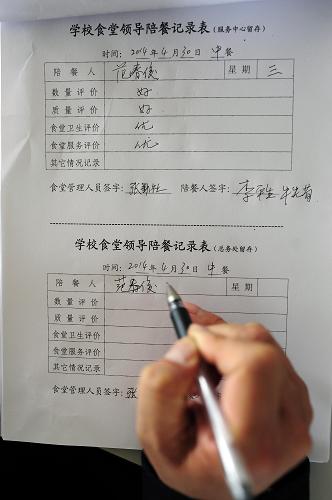 学校食堂领导陪餐记录表(服务中心留存)
时间:2014年4月30日 中餐
陪餐人 范春俊 星期 三
数量评价 好
质量评价 好
食堂卫生评价 优
食堂服务评价 优
其它情况记录
食堂管理人员签字: 陪餐人签字:
学校食堂领导陪餐记录表(总务处留存)
时间:2014年4月30日 中餐
陪餐人 范春俊 星期
数量评价
质量评价
食堂卫生评价
食堂服务评价
其它情况记录
食堂管理人员签字:张